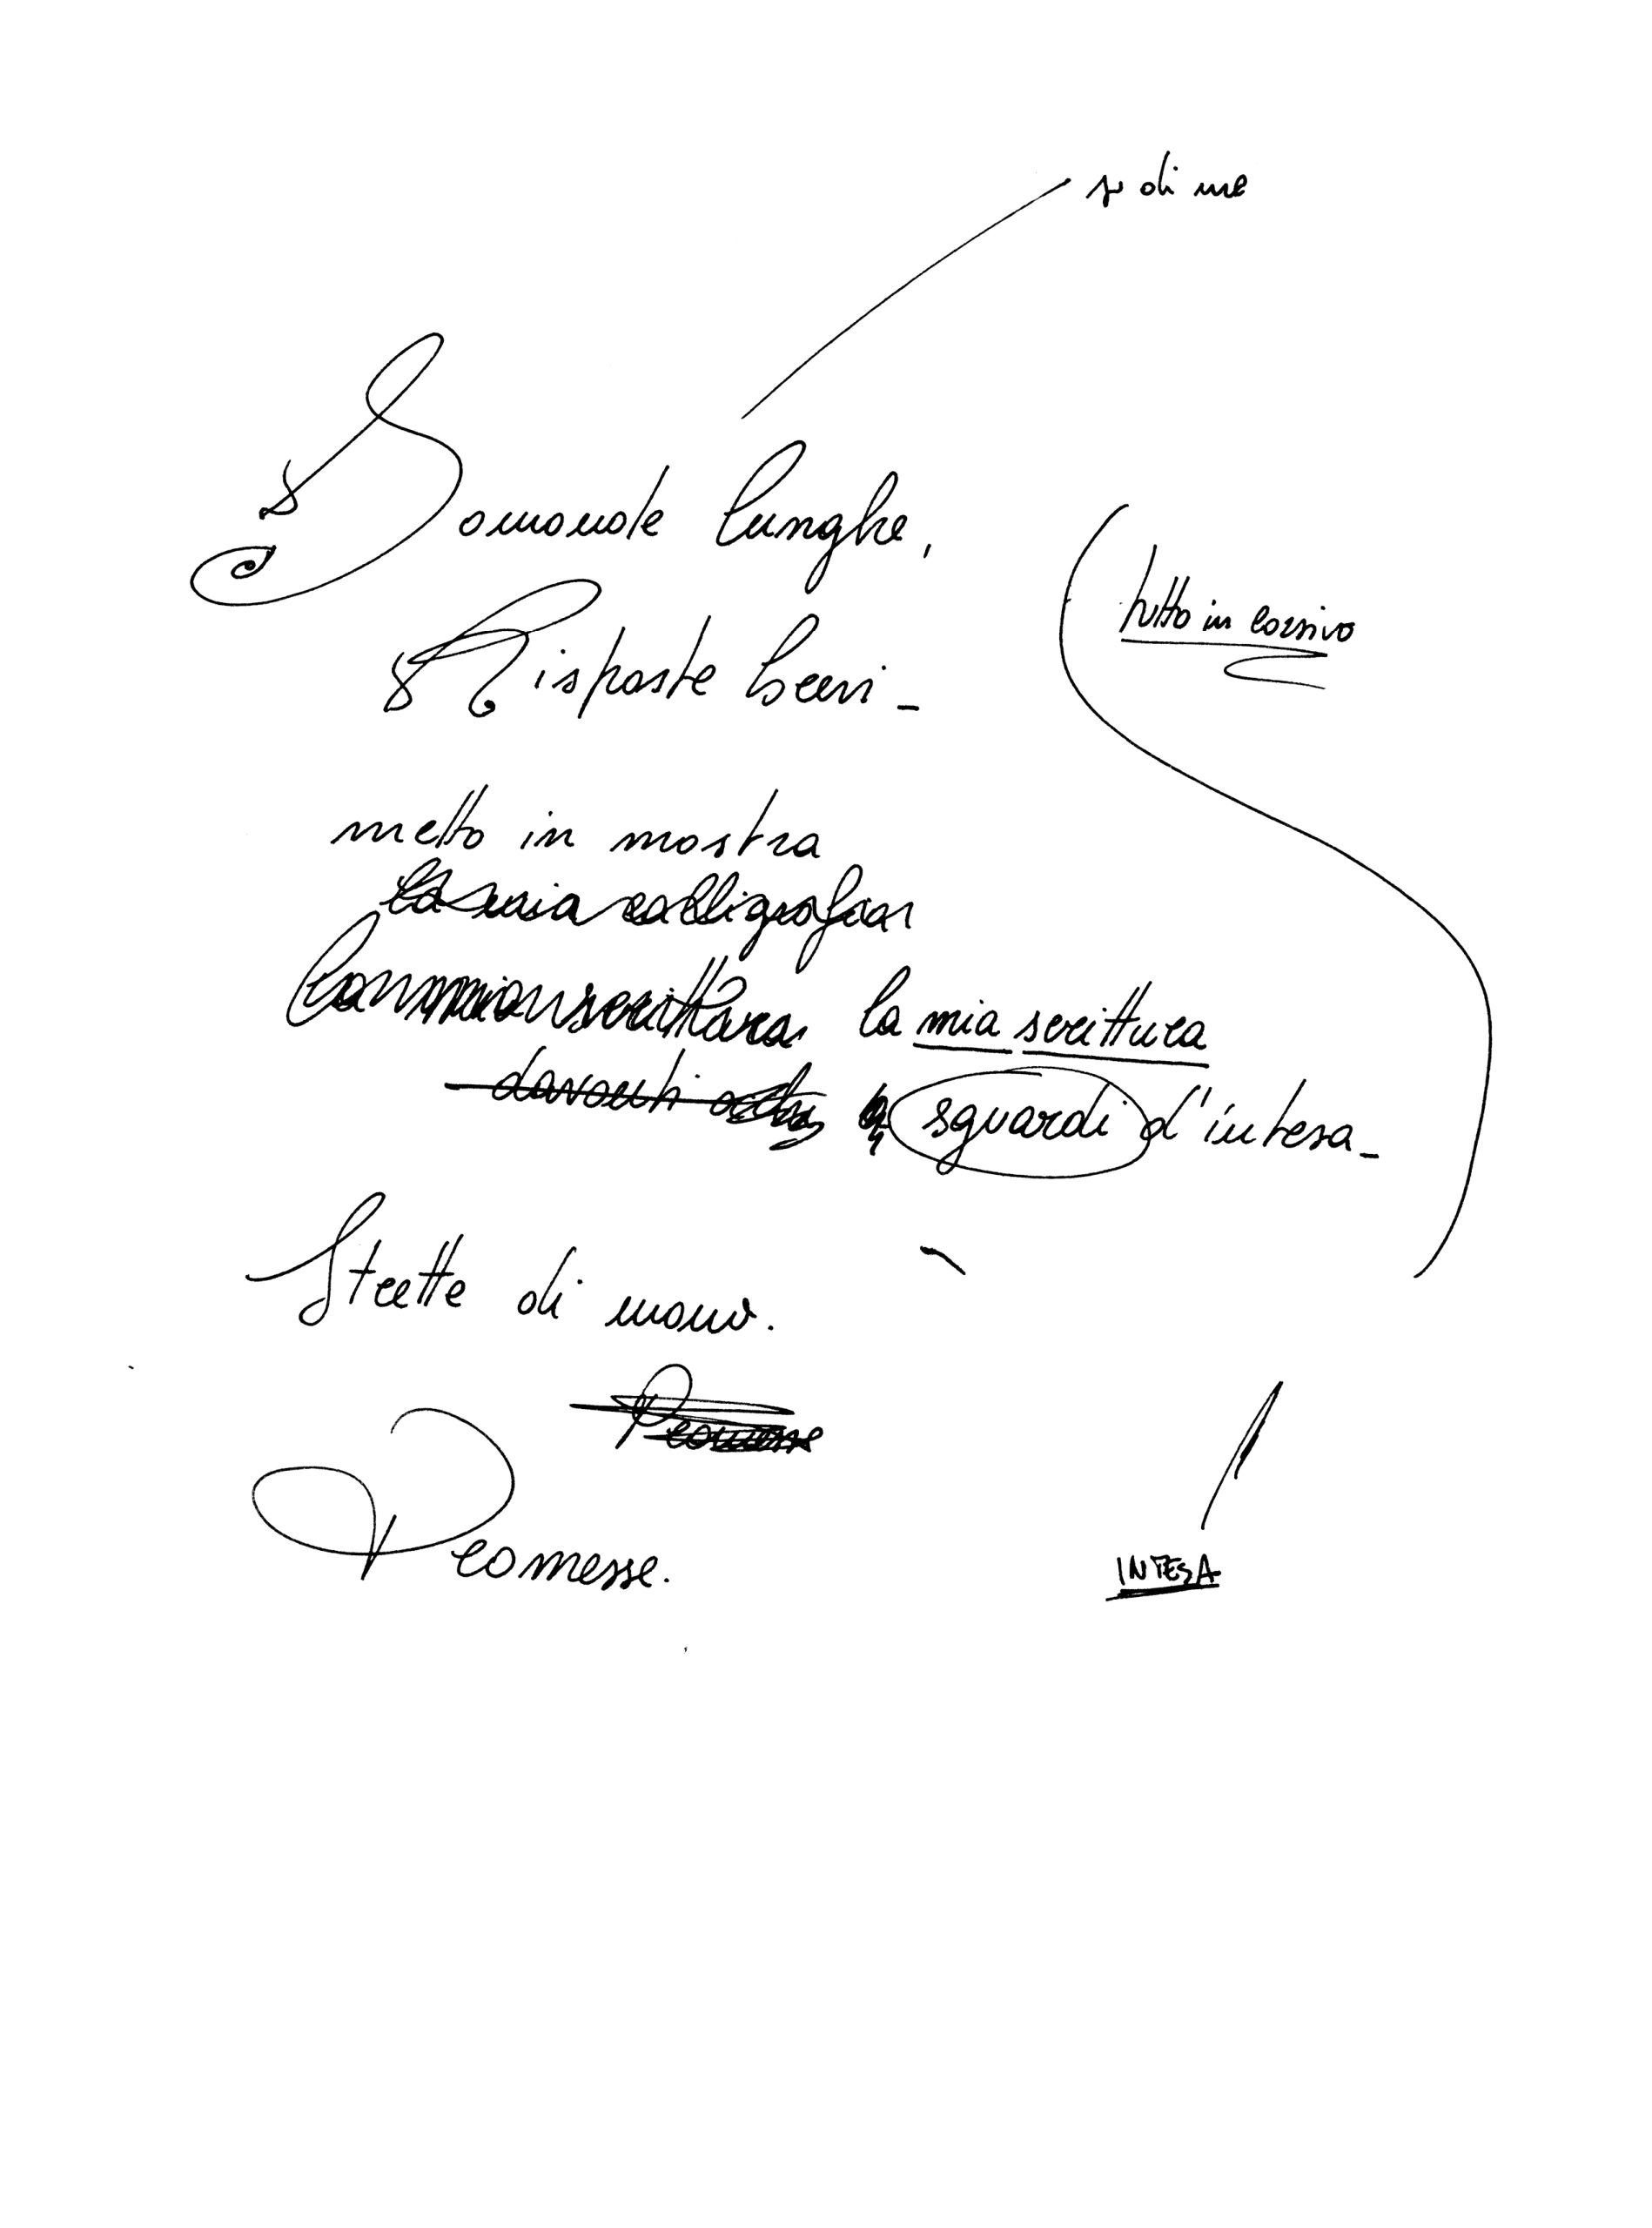 su di me
Domande lunghe,
Risposte brevi_
tutto in corsivo
metto in mostra
la mia calligrafia
la mia scrittura la mia scrittura
davanti sguardi d'intesa_
Strette di mano.
Promesse
Promesse.
INTESA